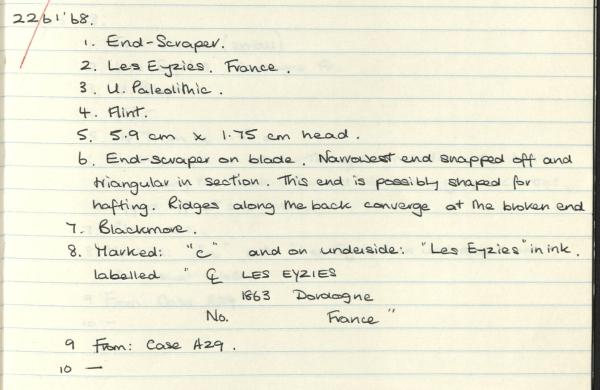 22/61'68.
1. End-Scraper.
2. Les Eyzies. France.
3. U. Paleolithic.
4. Flint.
5. 5.9 cm x 1.75 cm head.
6. End-scraper on blade. Narrowest end snapped off and
triangular in section. This end is possibly shaped for
hafting. Ridges along the back converge at the broken end
7. Blackmore.
8. Marked: "C" and on underside: "Les Eyzies" in ink.
labelled " LES EYZIES
1863 Dordogne
No. France "
9 From: Case A29.
10 —